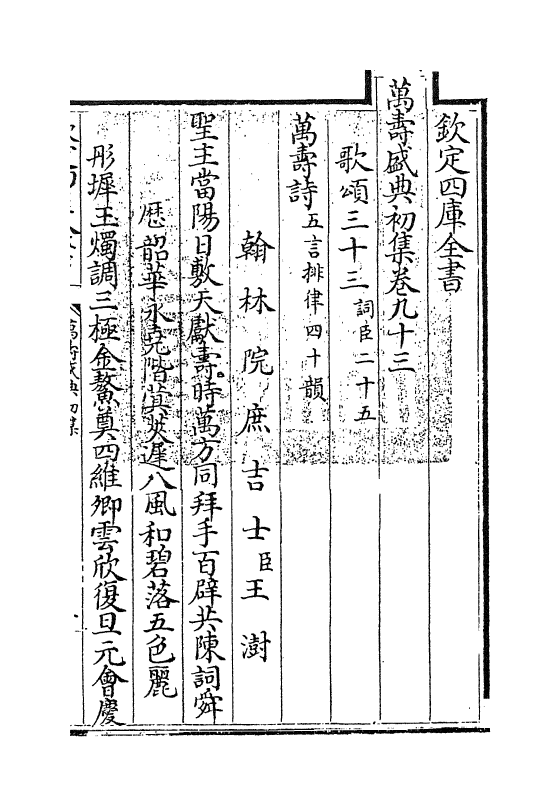 欽定四庫全書
萬壽盛典初集卷九十三
歌頌三十三詞臣二十五
萬壽詩五言排律四十韻
翰林院庶吉士臣王澍
聖主當陽日敷天獻壽時萬方同拜手百辟共陳詞舜
歴韶華永堯階蓂莢遲八風和碧落五色麗
彤墀玉燭調三極金鰲奠四維卿雲欣復旦元會慶
萬壽盛典初集